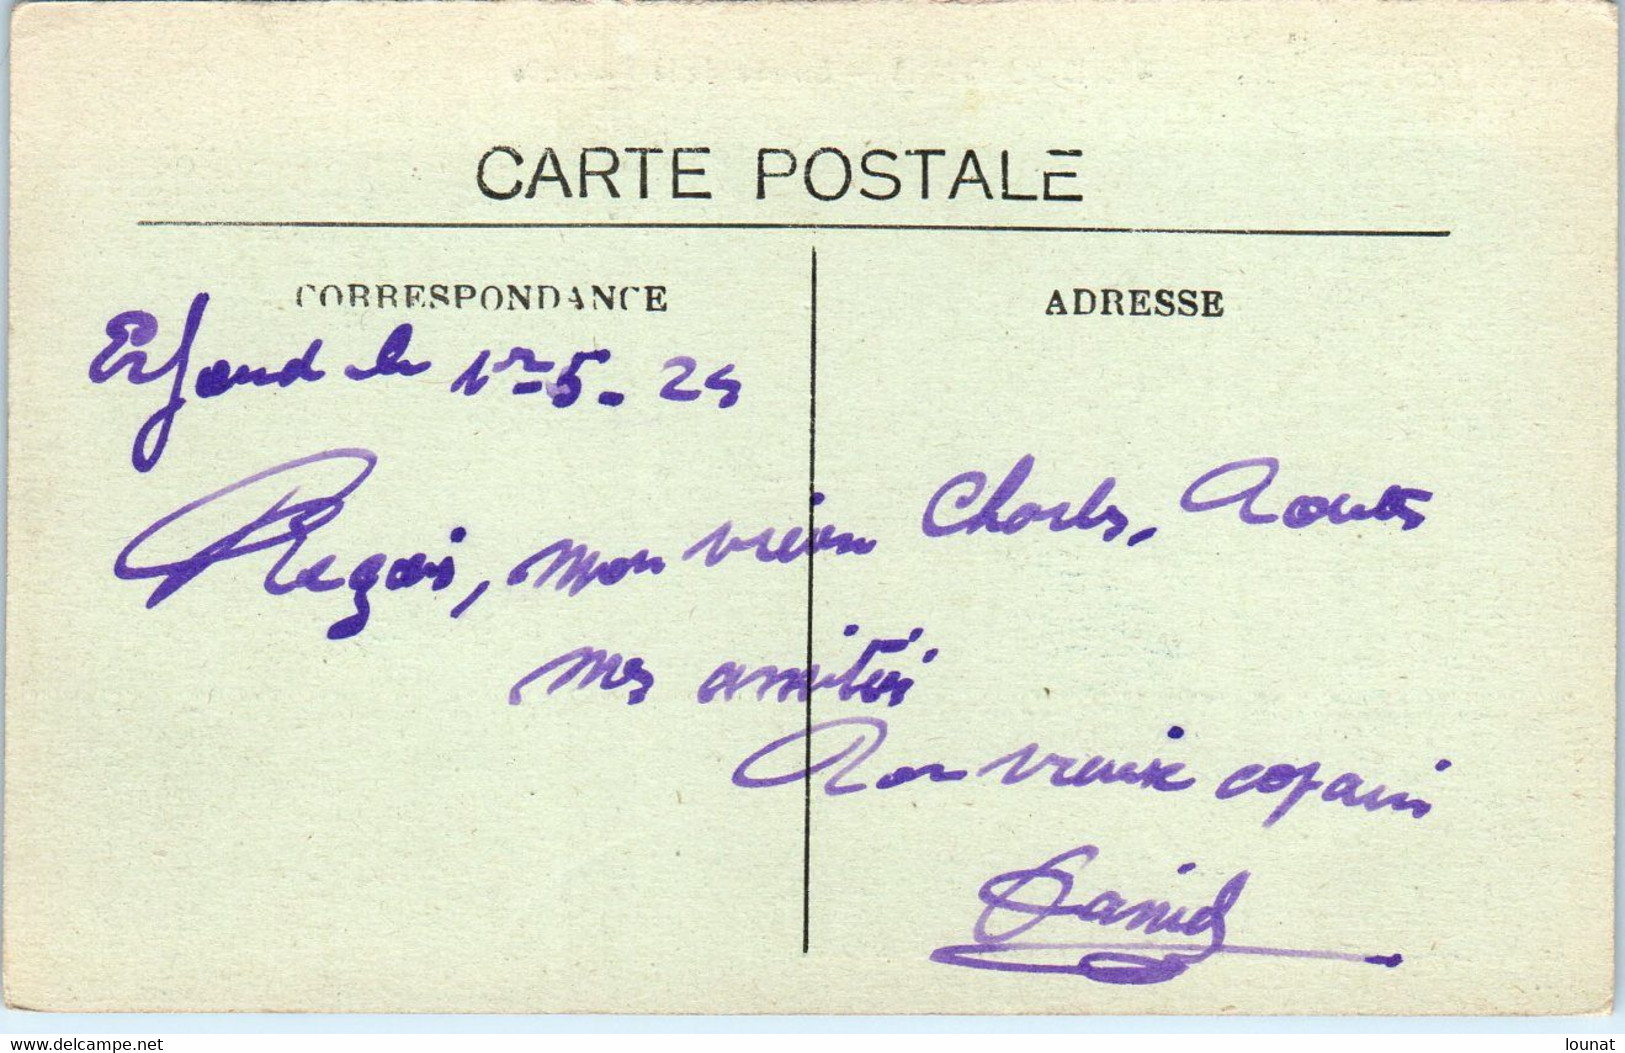 CARTE POSTALE
CORRESPONDANCE
ADRESSE
Erfoud le 1er-5-25
Reçois, mon vieux Charles, toutes
mes amitiés
Ton vieux copain
Daniel
www.delcampe.net
lounat